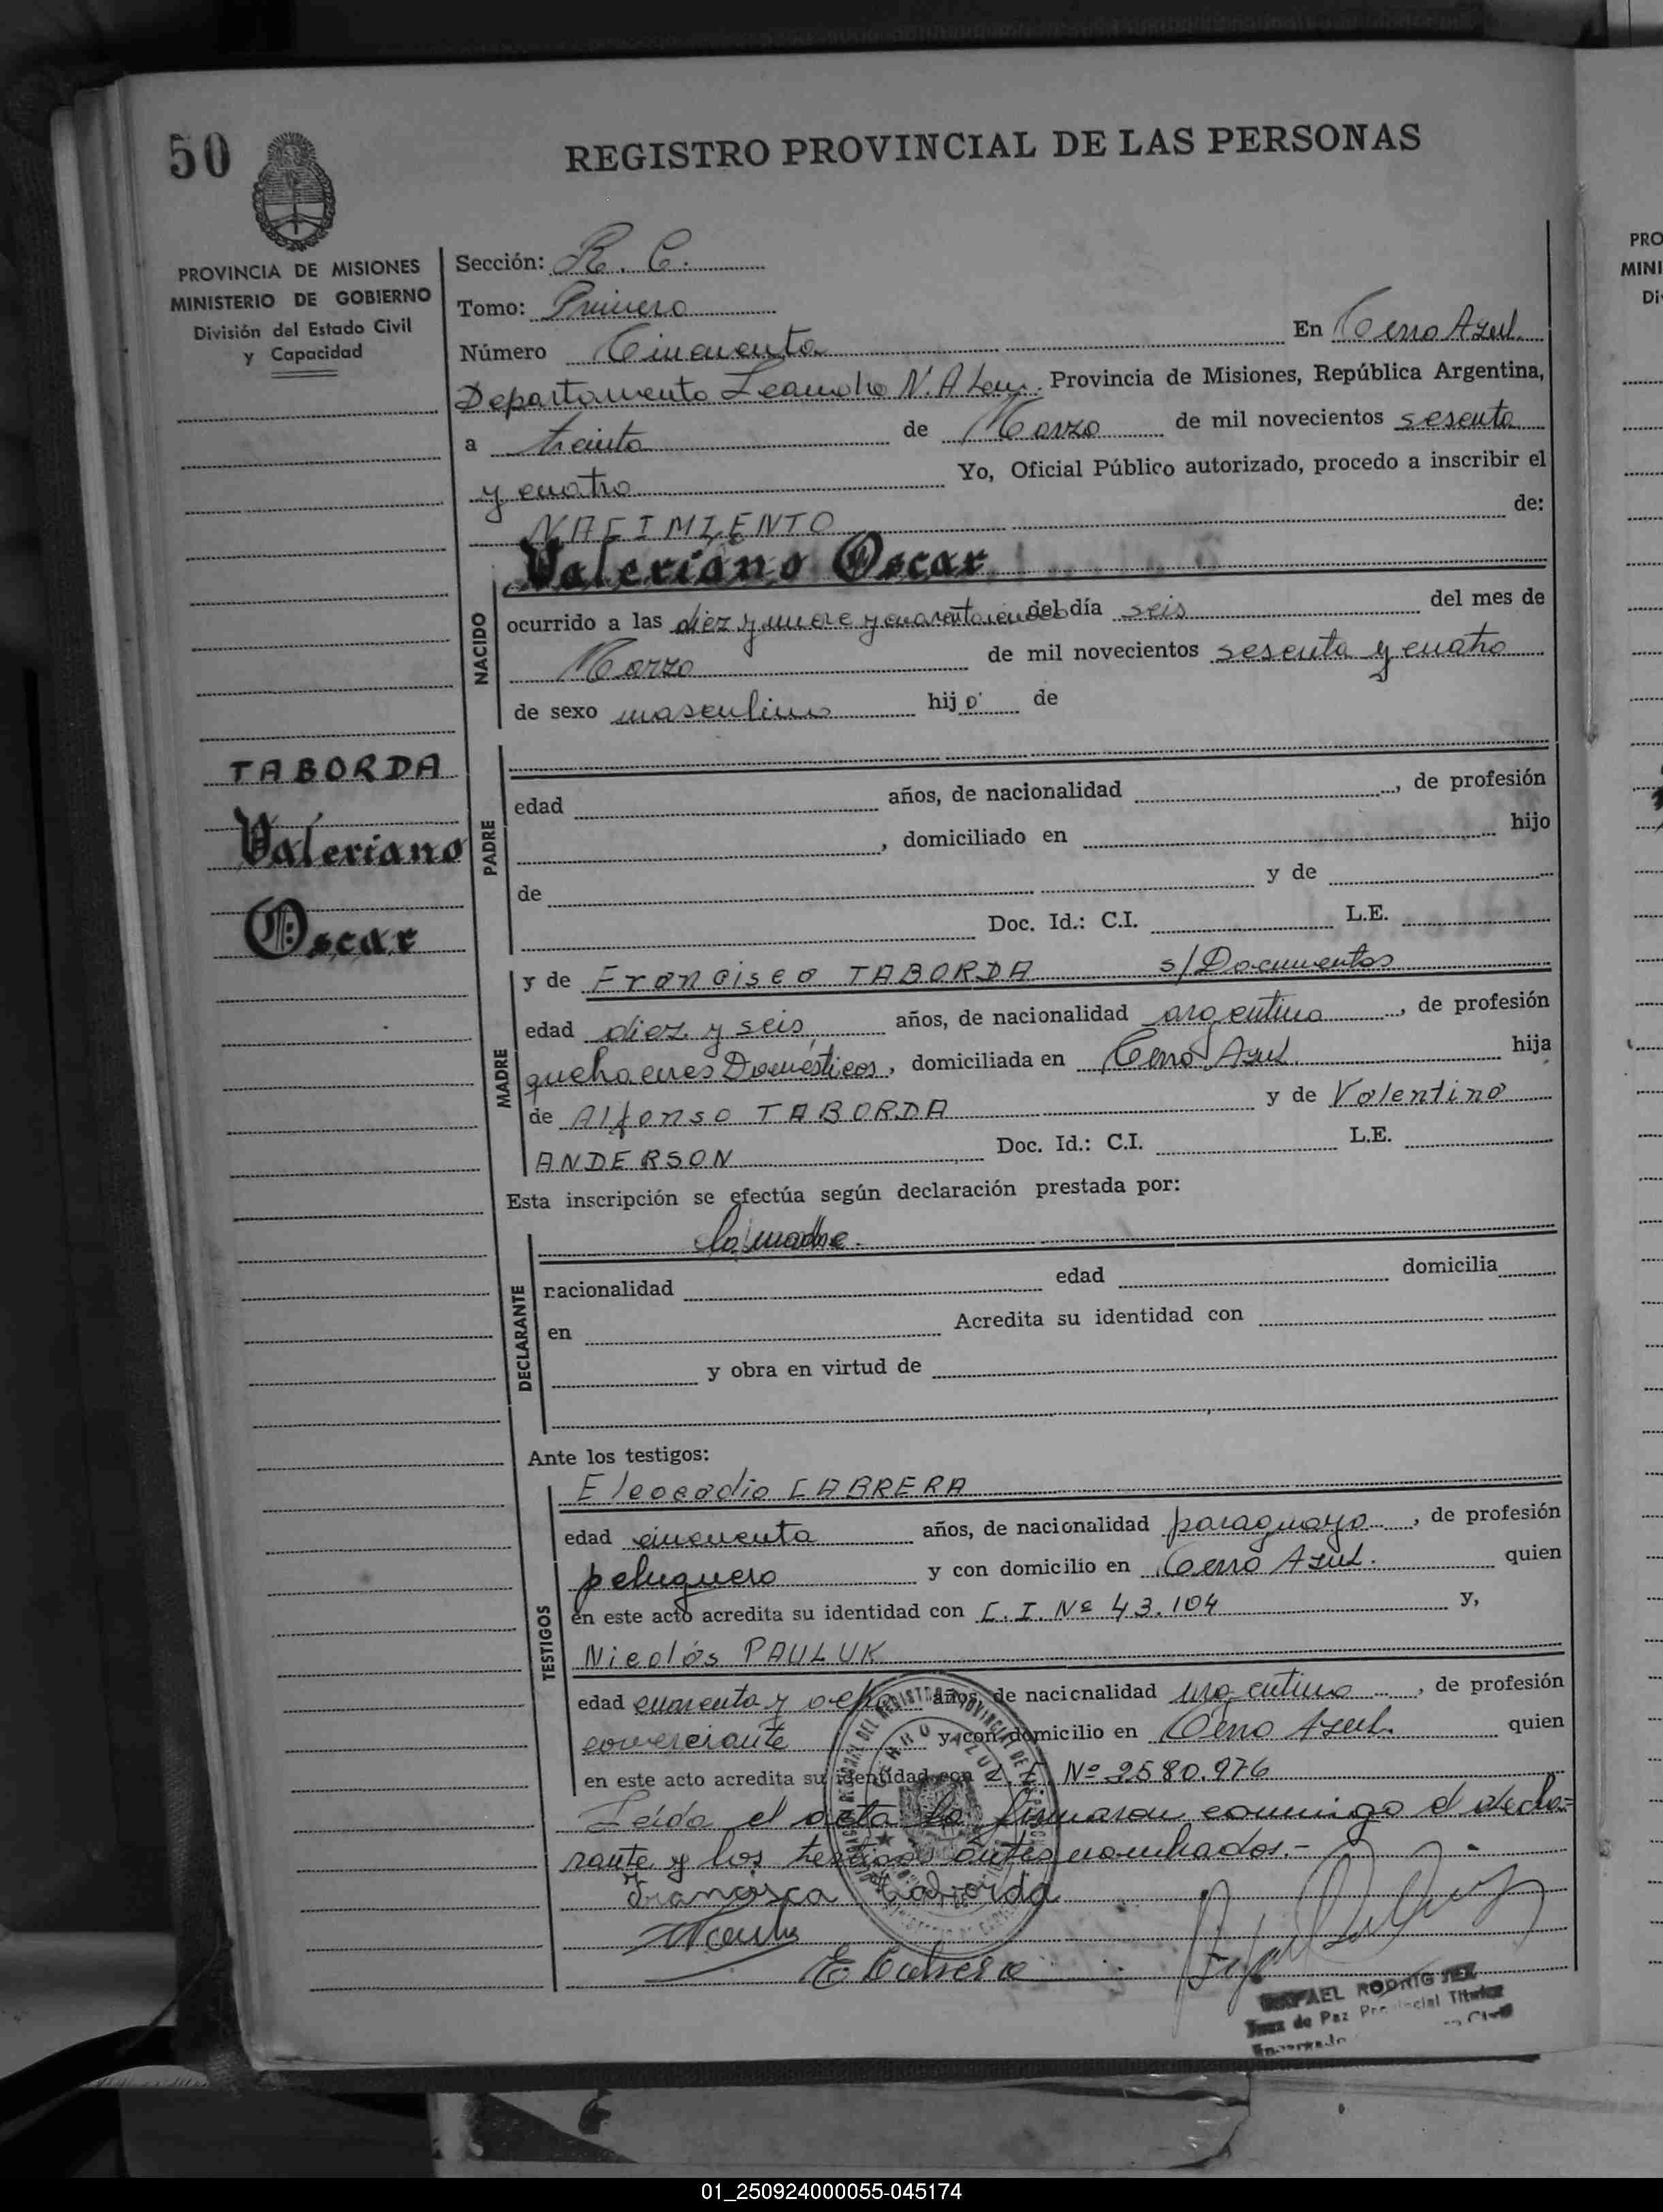 50
REGISTRO PROVINCIAL DE LAS PERSONAS
PROVINCIA DE MISIONES
MINISTERIO DE GOBIERNO
División del Estado Civil
y Capacidad
Sección: R. C.
Tomo: Primero
Número Cincuenta En Cerro Azul.
Departamento Leandro N. Alem. Provincia de Misiones, República Argentina,
a treinta de Marzo de mil novecientos sesenta
y cuatro Yo, Oficial Público autorizado, procedo a inscribir el
NACIMIENTO de:
NACIDO
Valeriano Oscar
ocurrido a las diez y nueve y cuarenta del día seis del mes de
Marzo de mil novecientos sesenta y cuatro
de sexo masculino hijo de
TABORDA
Valeriano
Oscar
PADRE
edad años, de nacionalidad , de profesión
, domiciliado en hijo
de y de
Doc. Id.: C.I. L.E.
MADRE
y de Francisca TABORDA s/Documentos
edad diez y seis, años, de nacionalidad argentina , de profesión
quehaceres Domésticos, domiciliada en Cerro Azul. hija
de Alfonso TABORDA y de Valentina
ANDERSON Doc. Id.: C.I. L.E.
Esta inscripción se efectúa según declaración prestada por:
DECLARANTE
la madre.
nacionalidad edad domicilia
en Acredita su identidad con
y obra en virtud de
Ante los testigos:
TESTIGOS
Eleocadio CABRERA
edad cincuenta años, de nacionalidad paraguayo , de profesión
peluquero y con domicilio en Cerro Azul. quien
en este acto acredita su identidad con C. I. Nº 43.104 y,
Nicolás PAULUK
edad cuarenta y ocho años, de nacionalidad argentino , de profesión
comerciante y con domicilio en Cerro Azul. quien
en este acto acredita su identidad con Nº 2580.976
Leída el acta la firmaron conmigo el decla=
rante y los testigos antes nombrados.-
Francisca Taborda
E Cabrera
RAFAEL RODRIGUEZ
Juez de Paz Provincial Titular
PRO
MINI
Di
01_250924000055-045174